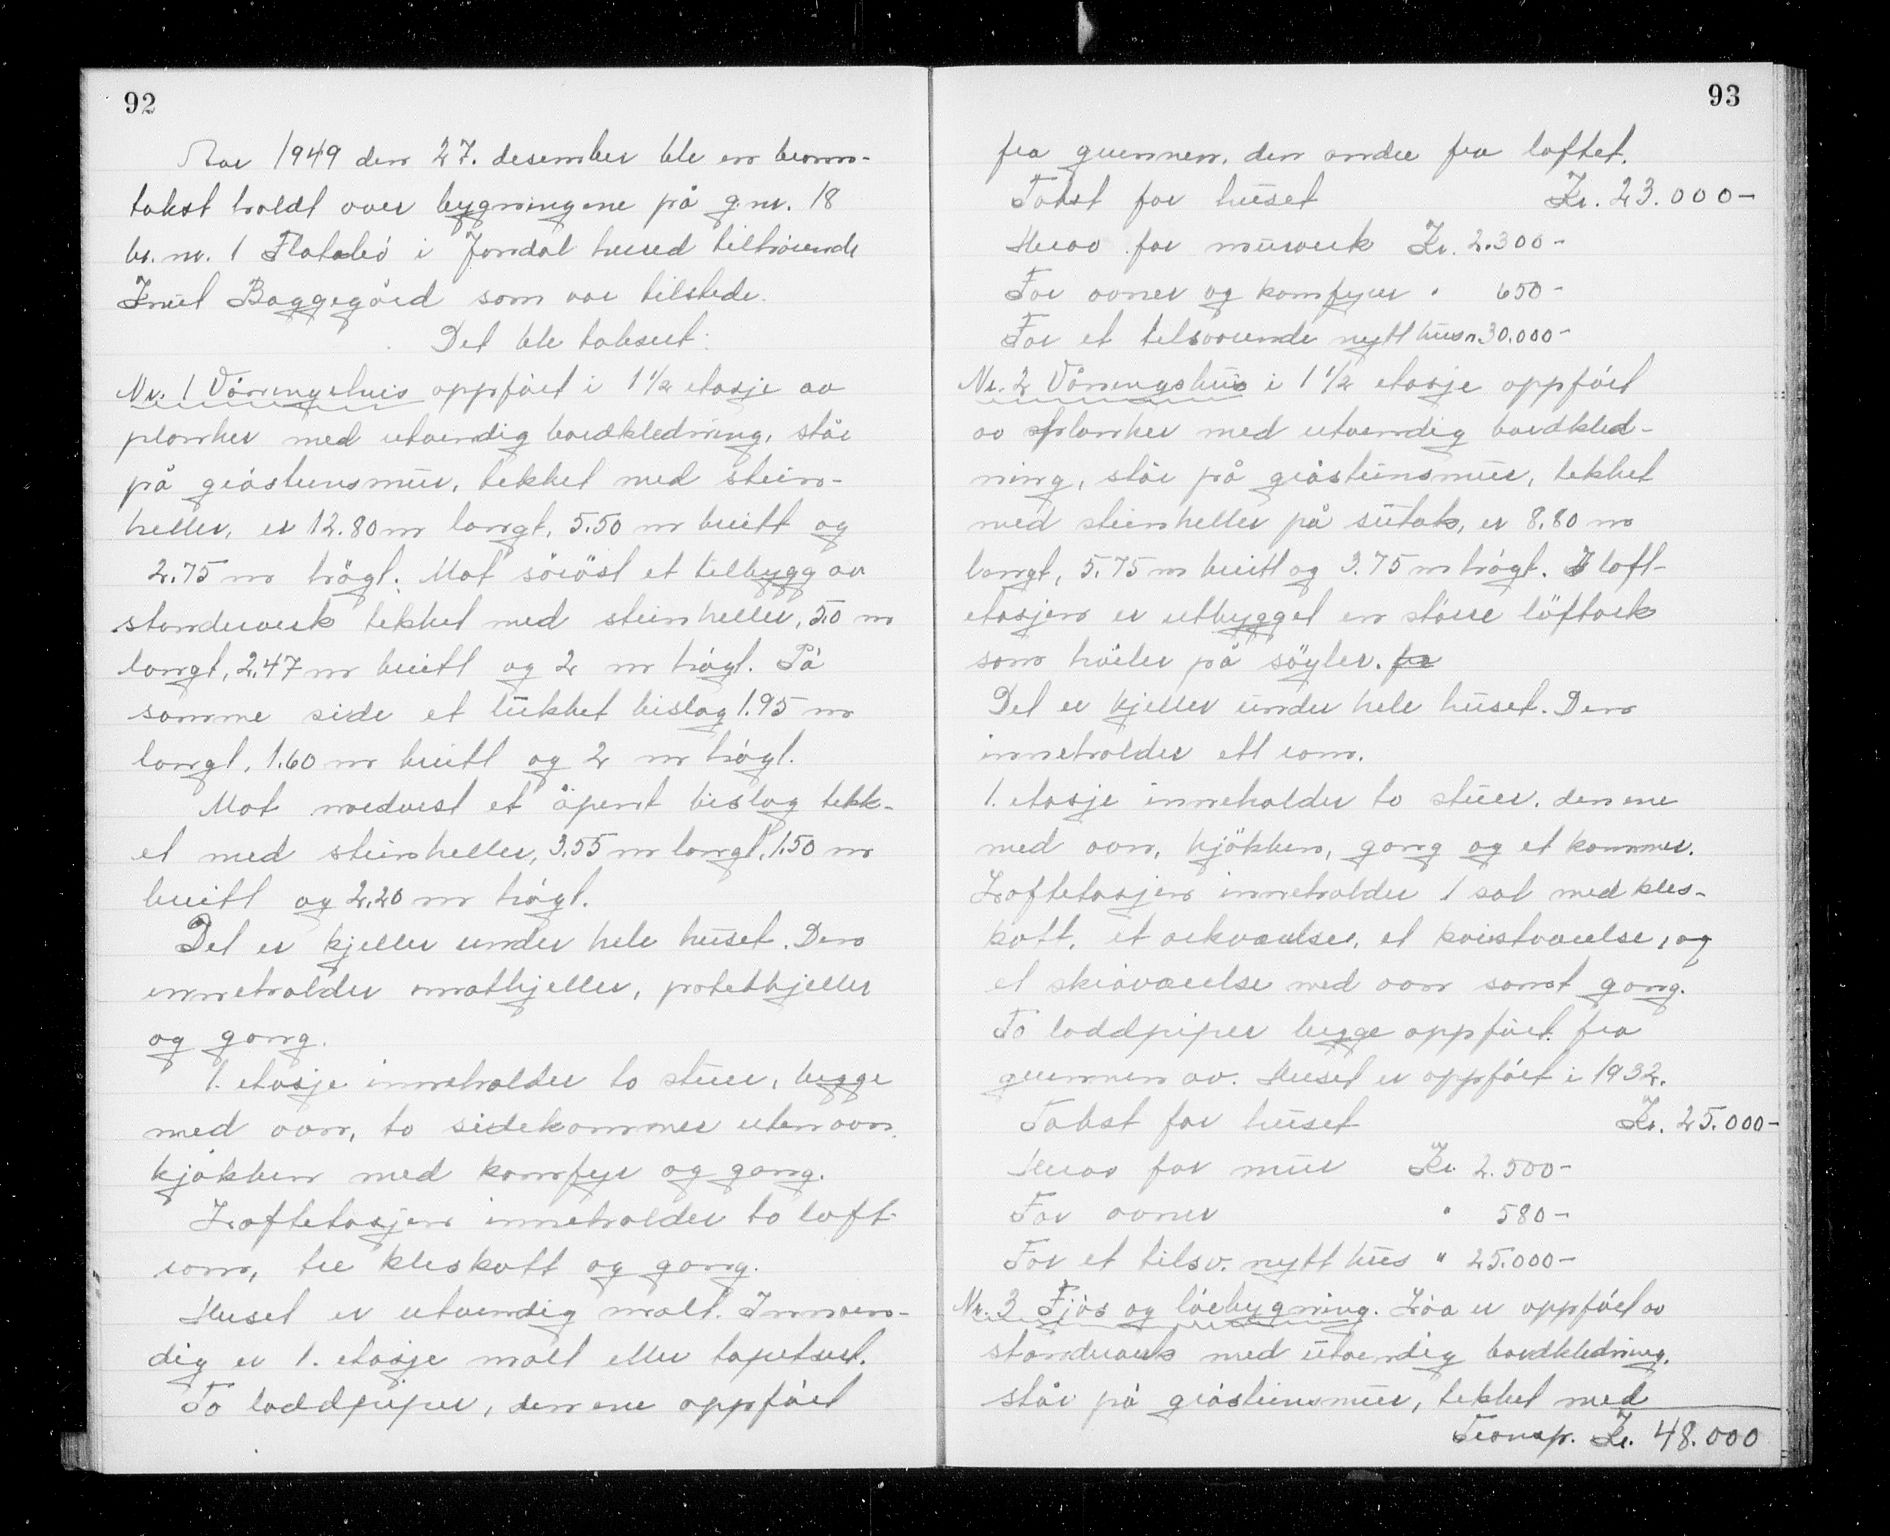 92
Aar 1949 den 27. desember ble en brann-
takst holdt over bygningene på g.nr. 18
br. nr. 1 Flatabö i Jondal herred tilhörende
Knut Baggegård som var tilstede.
Det ble taksert:
Nr. 1 Våningshus oppfört i 1 1/2 etasje av
planker med utvendig bordkledning, står
på gråsteinsmur, tekket med stein-
heller, er 12.80 m langt, 5.50 m breitt og
2.75 m högt. Mot söröst et tilbygg av
standerverk tekket med steinheller, 5.0 m
langt, 2.47 m breitt og 2 m högt. På
samme side et lukket bislag 1.95 m
langt, 1.60 m breitt og 2 m högt.
Mot nordvest et åpent bislag tekk-
et med steinheller, 3.55 m langt, 1.50 m
breitt og 2.20 m högt.
Det er kjeller under hele huset. Den
inneholder matkjeller, potetkjeller
og gang.
1. etasje inneholder to stuer, begge
med ovn, to sidekammer uten ovn,
kjökken med komfyr og gang.
Loftetasjen inneholder to loft-
rom, tre kleskott og gang.
Huset er utvendig malt. Innven-
dig er 1. etasje malt eller tapetsert.
To loddpiper, den ene oppfört
93
fra grunnen, den andre fra loftet.
Takst for huset Kr. 23.000-
Herav for murverk Kr. 2.300-
For ovner og komfyrer " 650-
For et tilsvarende nytt hus " 30.000-
Nr. 2 Våningshus i 1 1/2 etasje oppfört
av planker med utvendig bordkled-
ning, står på gråsteinsmur, tekket
med steinheller på sutak, er 8.80 m
langt, 5.75 m breitt og 3.75 m högt. I loft-
etasjen er utbygget en större löftark
som hviler på söyler. fr
Det er kjeller under hele huset. Den
inneholder ett rom.
1. etasje inneholder to stuer, den ene
med ovn, kjökken, gang og et kammer.
Loftetasjen inneholder 1 sal med kles-
kott, et arkværelse, et kvistværelse, og
et skråværelse med ovn samt gang.
To loddpiper begge oppfört fra
grunnen av. Huset er oppfört i 1932.
Takst for huset Kr. 25.000-
Herav for mur Kr. 2.500-
For ovner " 580-
For et tilsv. nytt hus " 25.000-
Nr. 3 Fjös og löebygning. Löa er oppfört av
standerverk med utvendig bordkledning,
står på gråsteinsmur, tekket med
Transp. Kr. 48.000